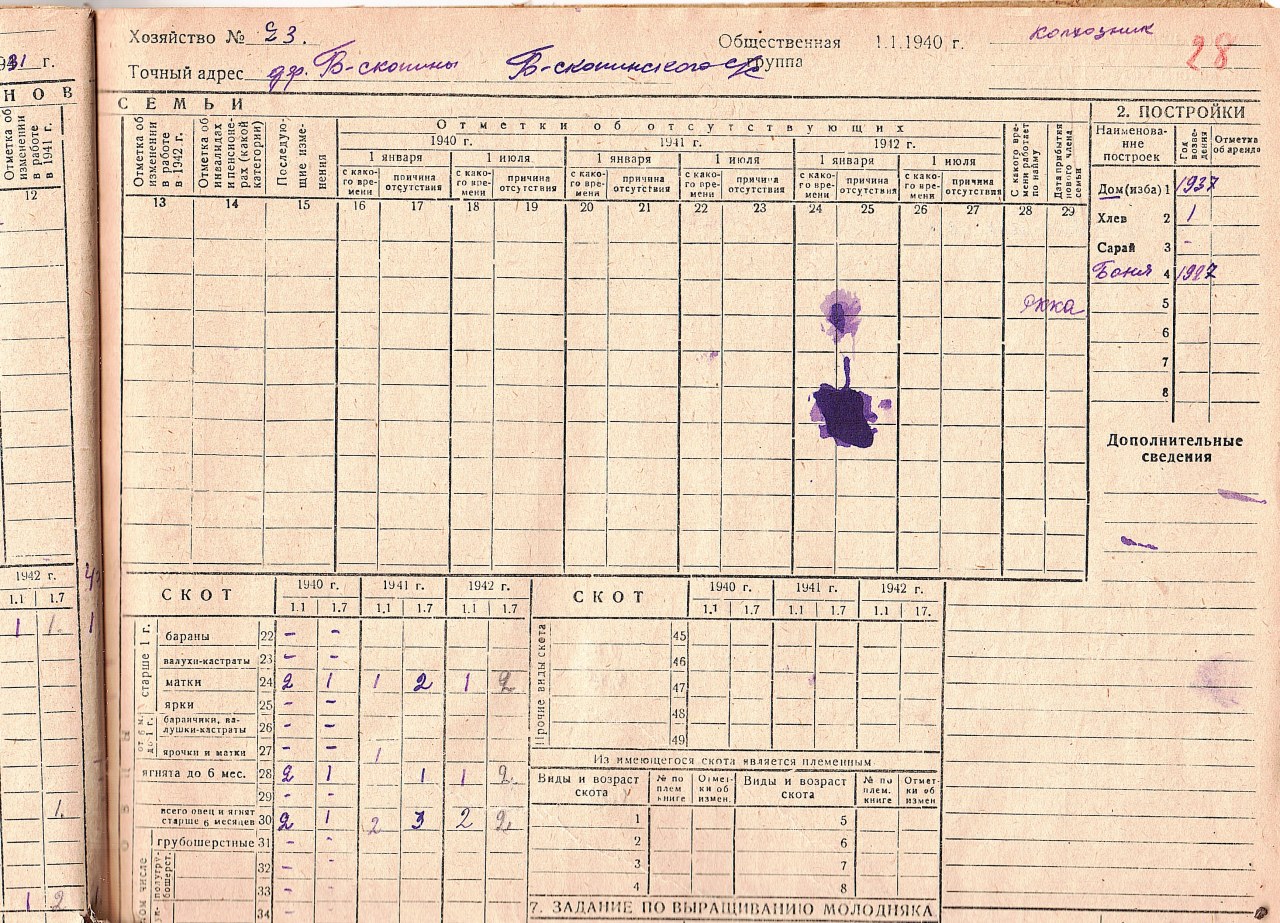 Хозяйство № 23.
Общественная группа 1.1.1940 г. колхозник
28
Точный адрес др. Б-скопины Б-скопинского с/с
31 г.
НОВ
СЕМЬИ
2. ПОСТРОЙКИ
Отметка об изменении в работе в 1941 г.
12
Отметка об изменении в работе в 1942 г.
Отметка об инвалидах и пенсионерах (какой категории)
Последующие изменения
Отметки об отсутствующих
1940 г. 1941 г. 1942 г.
1 января 1 июля 1 января 1 июля 1 января 1 июля
с какого времени причина отсутствия с какого времени причина отсутствия с какого времени причина отсутствия с какого времени причина отсутствия с какого времени причина отсутствия с какого времени причина отсутствия
С какого времени работает по найму
Дата прибытия нового члена семьи
13 14 15 16 17 18 19 20 21 22 23 24 25 26 27 28 29
Наименование построек Год возведения Отметка об аренде
Дом (изба) 1 1937
Хлев 2 1
Сарай 3 -
Баня 4 1927
5
6
7
8
Ркка
Дополнительные сведения
1942 г.
1.1 1.7
1 1.
1.
1 2
СКОТ 1940 г. 1941 г. 1942 г.
1.1 1.7 1.1 1.7 1.1 1.7
старше 1 г.
бараны 22 - -
валухи-кастраты 23 - -
матки 24 2 1 1 2 1 2
ярки 25 - -
от 6 м. до 1 г.
баранчики, валушки-кастраты 26 - -
ярочки и матки 27 - - 1
ягнята до 6 мес. 28 2 1 1 1 2
29 - -
всего овец и ягнят старше 6 месяцев 30 2 1 2 3 2 2
грубошерстные 31 - -
полугрубошерст. 32 -
33 -
34
СКОТ 1940 г. 1941 г. 1942 г.
1.1 1.7 1.1 1.7 1.1 17.
Прочие виды скота
45
46
47
48
49
Из имеющегося скота является племенным
Виды и возраст скота № по плем. книге Отметки об измен. Виды и возраст скота № по плем. книге Отметки об измен
1 5
2 6
3 7
4 8
7. ЗАДАНИЕ ПО ВЫРАЩИВАНИЮ МОЛОДНЯКА